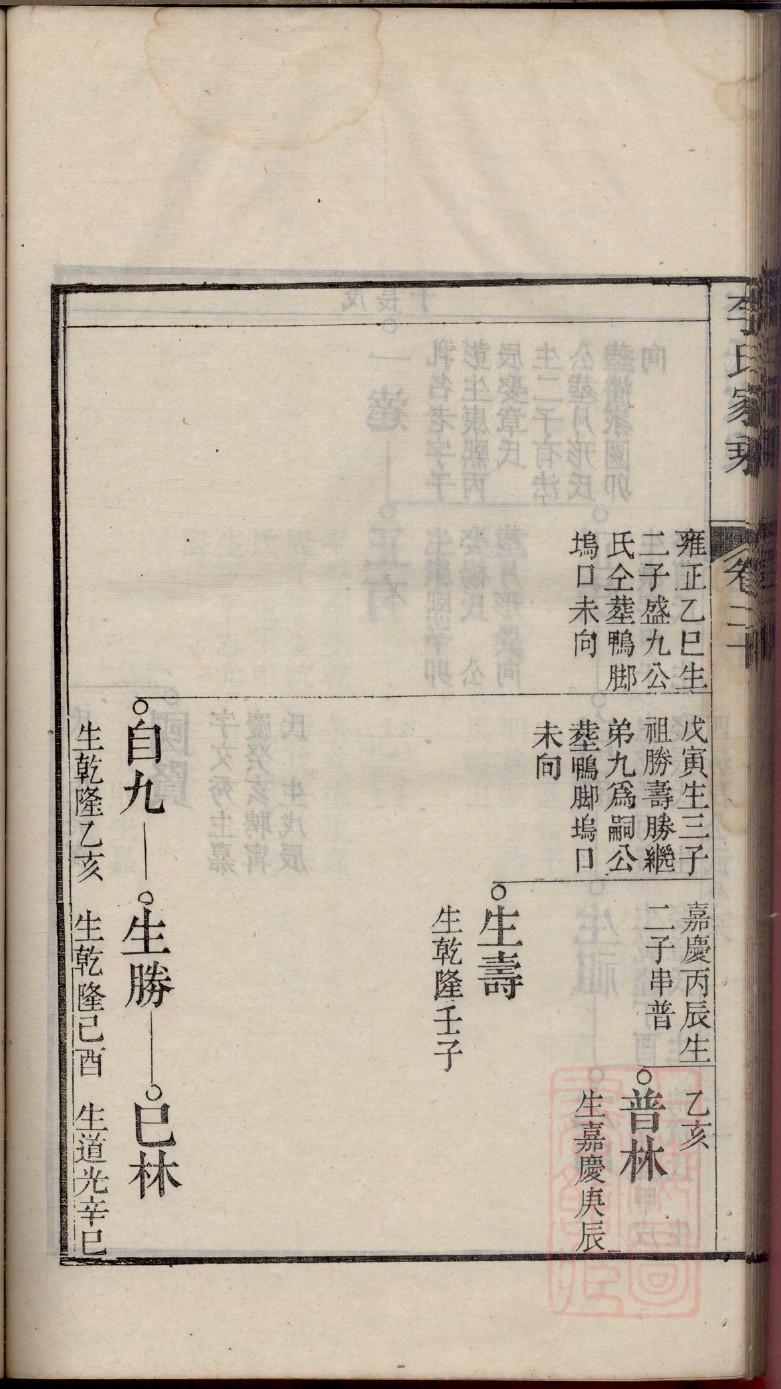 李氏家乘
卷二十
雍正乙巳生
二子盛九公
氏仝塟鴨脚
塢口未向
戊寅生三子
祖勝壽勝繼
弟九爲嗣公
塟鴨脚塢口
未向
嘉慶丙辰生
二子串普
乙亥
普林
生嘉慶庚辰
生壽
生乾隆壬子
自九
生乾隆乙亥
生勝
生乾隆己酉
巳林
生道光辛巳